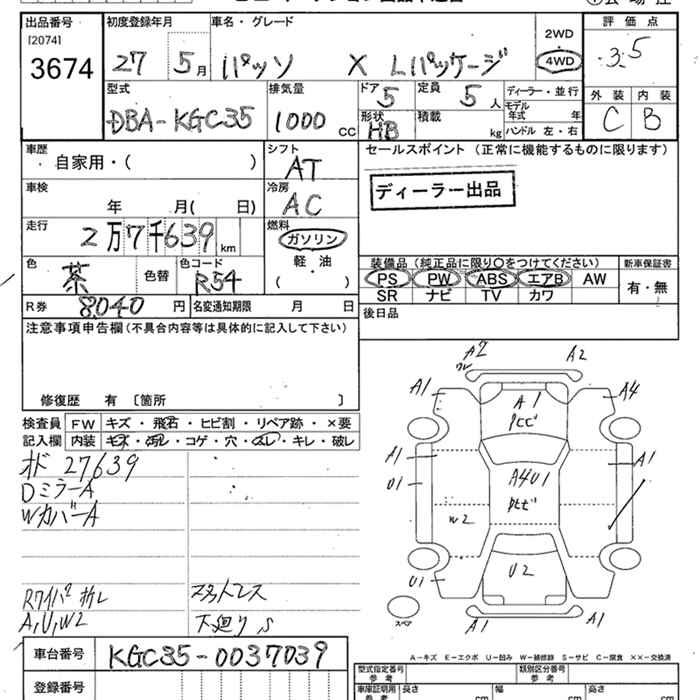 出品番号 初度登録年月 車名・グレード 2WD 評価点
[2074]
3674 27 5月 パッソ X Lパッケージ 4WD 3.5
型式 排気量 ドア 定員 ディーラー・並行 外装 内装
DBA-KGC35 1000 CC 5 5人 モデル年式 年 C B
形状 積載 ハンドル 左・右
HB kg
車歴 シフト セールスポイント (正常に機能するものに限ります)
自家用・( ) AT
車検 冷房 ディーラー出品
年 月( 日) AC
走行 燃料
2万7千639km ガソリン
色 色コード 軽・油 装備品 (純正品に限り○をつけてください) 新車保証書
茶 色替 R54 ( ) PS PW ABS エアB AW 有・無
SR ナビ TV カワ
R券 8040円 名変通知期限 月 日 後日品
注意事項申告欄(不具合内容等は具体的に記入して下さい)
修復歴 有〔箇所 〕
検査員 FW キズ・飛石・ヒビ割・リペア跡・×要
記入欄 内装 キズ・汚れ・コゲ・穴・スレ・キレ・破レ
オド 27639
DミラーA
WカバーA
Rワイパー折レ
A,U,W2 下廻りS
A2 A2
A1 A1 A4
トビ
A1 A4U1 A1
U1 トビ
W2
U1 U2
A1 A1
スペア
A-キズ E-エクボ U-凹み W-補修跡 S-サビ C-腐食 XX-交換済
車台番号 KGC35-0037039 型式指定番号 参考 類別区分番号 参考
登録番号 車庫証明用 参考 長さ cm 幅 cm 高さ cm